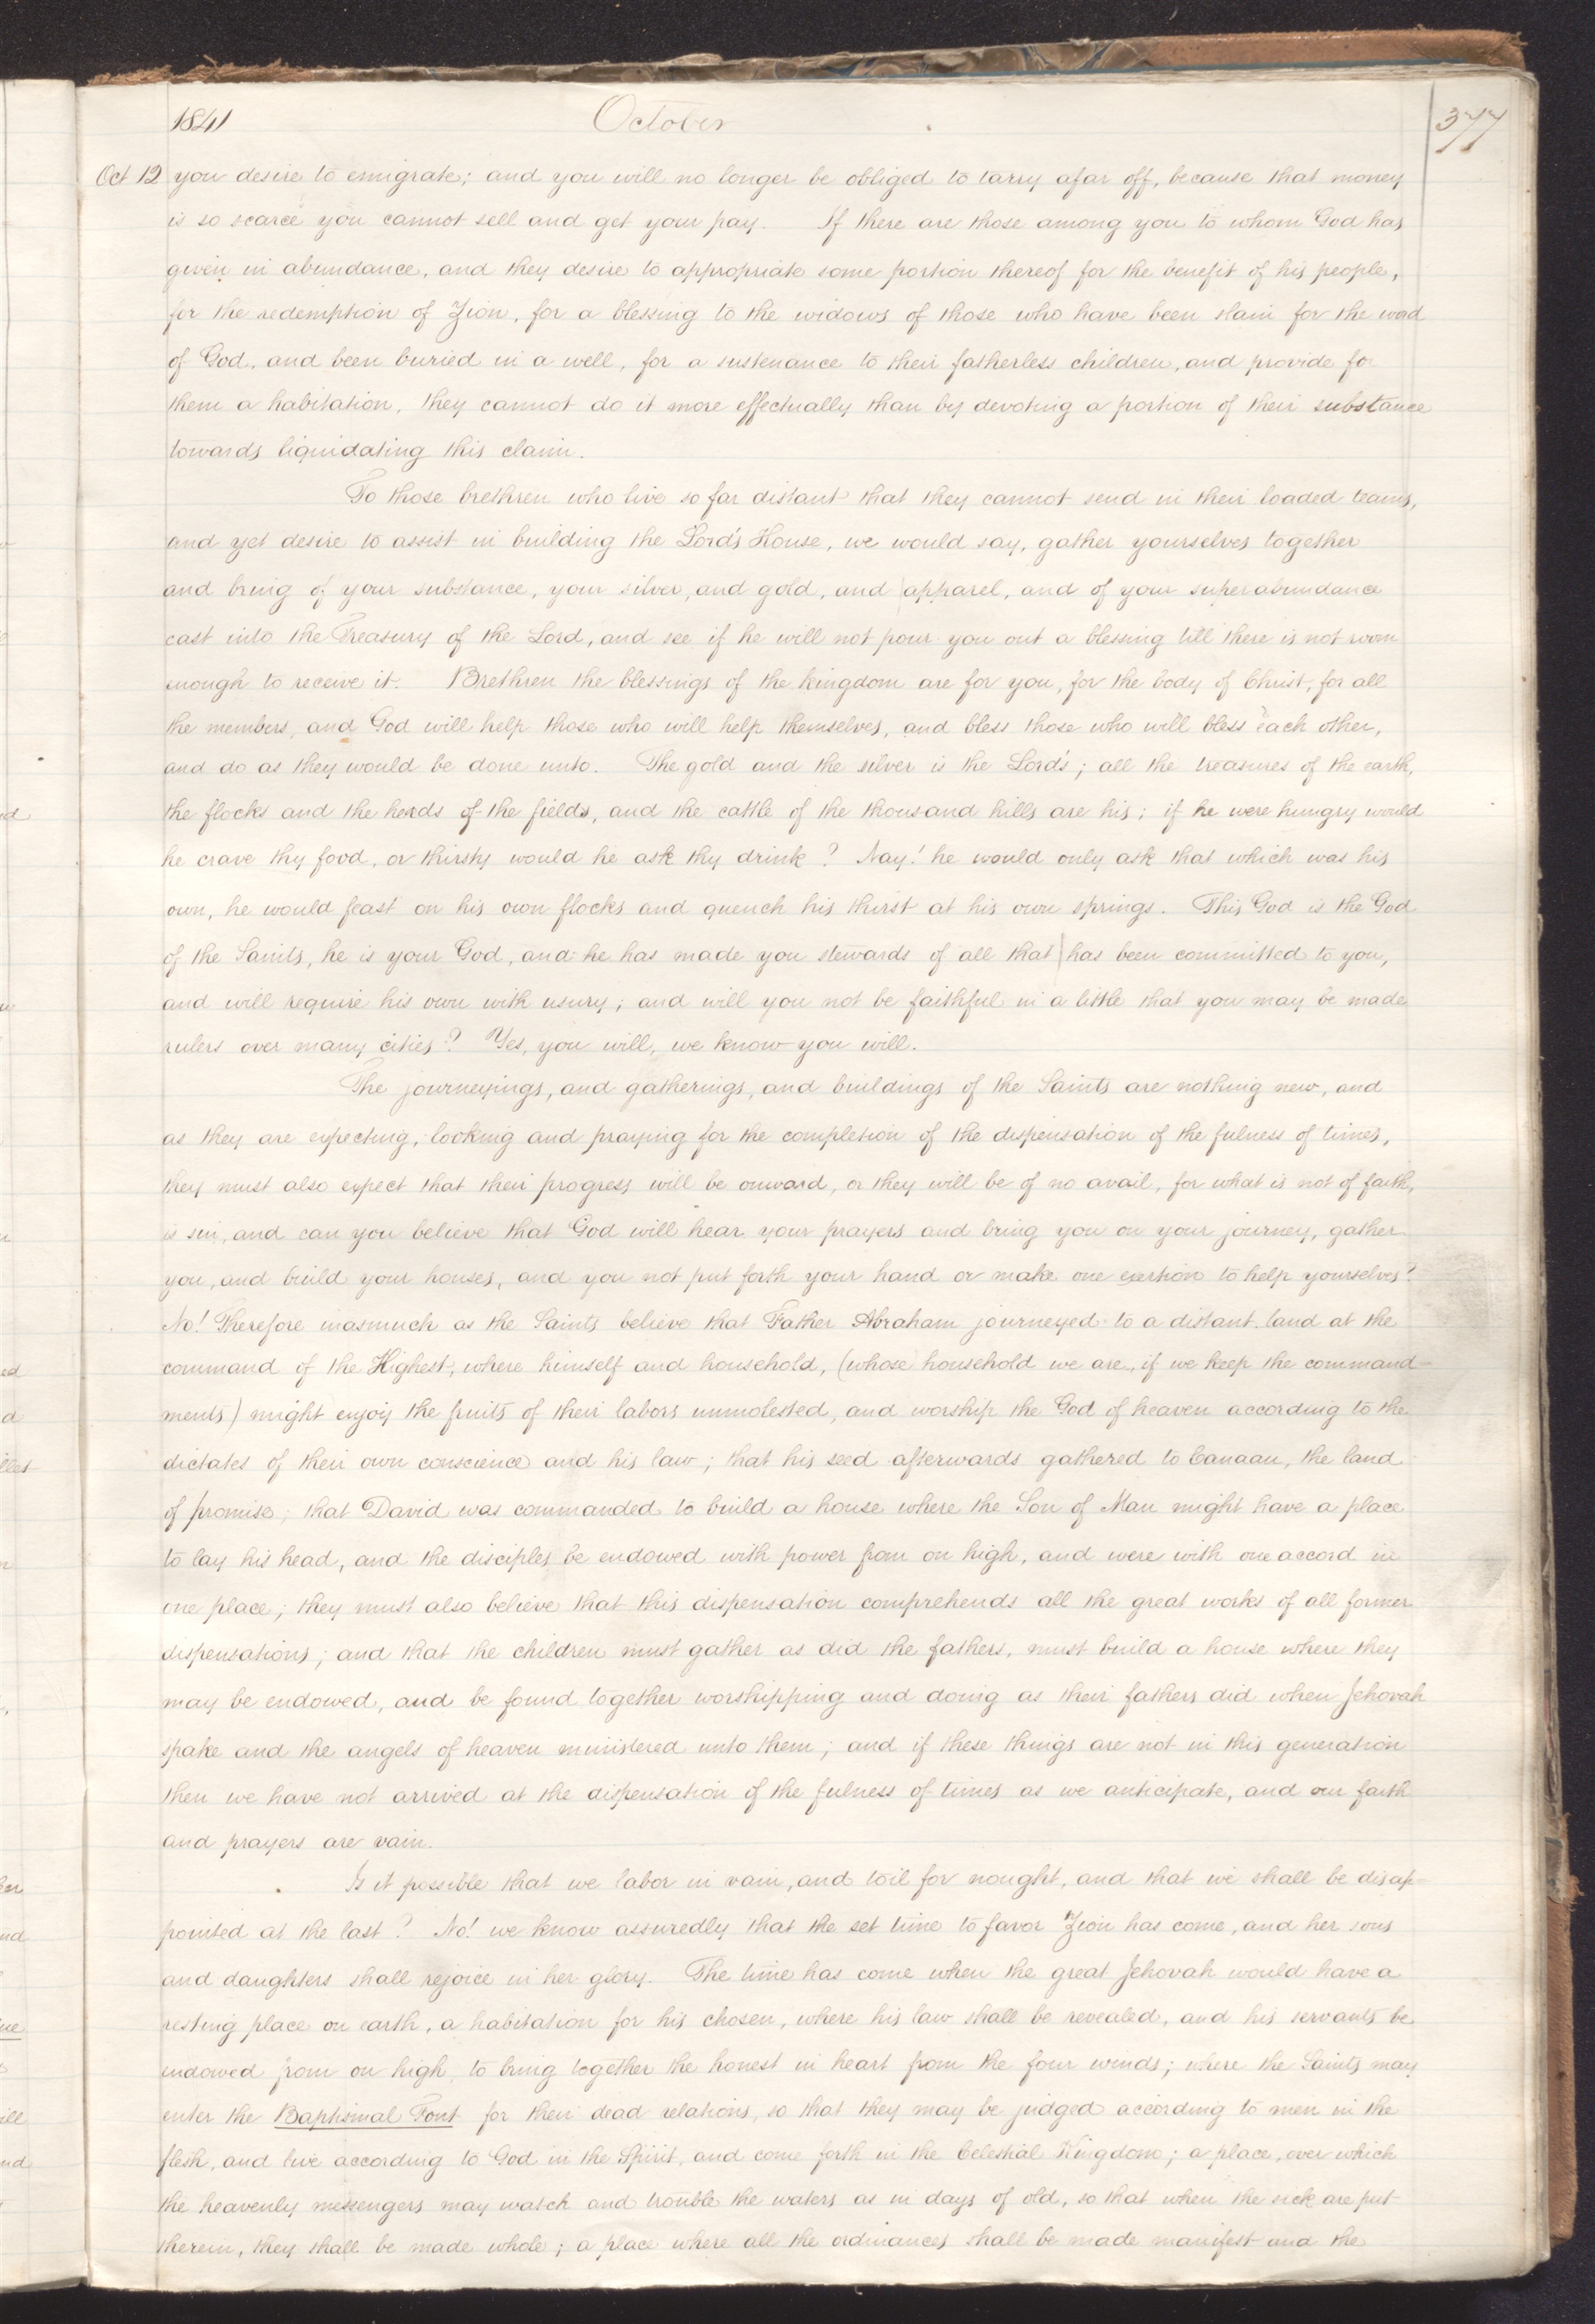 1841 October 377
Oct 12 you desire to emigrate; and you will no longer be obliged to tarry afar off, because that money
is so scarce you cannot sell and get your pay. If there are those among you to whom God has
given in abundance, and they desire to appropriate some portion thereof for the benefit of his people,
for the redemption of Zion, for a blessing to the widows of those who have been slain for the word
of God, and been buried in a well, for a sustenance to their fatherless children, and provide for
them a habitation, they cannot do it more effectually than by devoting a portion of their substance
towards liquidating this claim.
To those brethren who live so far distant that they cannot send in their loaded teams,
and yet desire to assist in building the Lord's House, we would say, gather yourselves together
and bring of your substance, your silver, and gold, and apparel, and of your superabundance
cast into the Treasury of the Lord, and see if he will not pour you out a blessing till there is not room
enough to receive it. Brethren the blessings of the kingdom are for you, for the body of Christ, for all
the members, and God will help those who will help themselves, and bless those who will bless each other,
and do as they would be done unto. The gold and the silver is the Lord's; all the treasures of the earth,
the flocks and the herds of the fields, and the cattle of the thousand hills are his; if he were hungry would
he crave thy food, or thirsty would he ask thy drink? Nay! he would only ask that which was his
own, he would feast on his own flocks and quench his thirst at his own springs. This God is the God
of the Saints, he is your God, and he has made you stewards of all that has been committed to you,
and will require his own with usury; and will you not be faithful in a little that you may be made
rulers over many cities? Yes, you will, we know you will.
The journeyings, and gatherings, and buildings of the Saints are nothing new, and
as they are expecting, looking and praying for the completion of the dispensation of the fulness of times,
they must also expect that their progress will be onward, or they will be of no avail, for what is not of faith,
is sin, and can you believe that God will hear your prayers and bring you on your journey, gather
you, and build your houses, and you not put forth your hand or make one exertion to help yourselves?
No! Therefore inasmuch as the Saints believe that Father Abraham journeyed to a distant land at the
command of the Highest, where himself and household, (whose household we are, if we keep the command-
ments) might enjoy the fruits of their labors unmolested, and worship the God of heaven according to the
dictates of their own conscience and his law; that his seed afterwards gathered to Canaan, the land
of promise; that David was commanded to build a house where the Son of Man might have a place
to lay his head, and the disciples be endowed with power from on high, and were with one accord in
one place; they must also believe that this dispensation comprehends all the great works of all former
dispensations; and that the children must gather as did the fathers, must build a house where they
may be endowed, and be found together worshipping and doing as their fathers did when Jehovah
spake and the angels of heaven ministered unto them; and if these things are not in this generation
then we have not arrived at the dispensation of the fulness of times as we anticipate, and our faith
and prayers are vain.
Is it possible that we labor in vain, and toil for nought, and that we shall be disap-
pointed at the last? No! we know assuredly that the set time to favor Zion has come, and her sons
and daughters shall rejoice in her glory. The time has come when the great Jehovah would have a
resting place on earth, a habitation for his chosen, where his law shall be revealed, and his servants be
endowed from on high, to bring together the honest in heart from the four winds; where the Saints may
enter the Baptismal Font for their dead relations, so that they may be judged according to men in the
flesh, and live according to God in the Spirit, and come forth in the Celestial Kingdom; a place, over which
the heavenly messengers may watch and trouble the waters as in days of old, so that when the sick are put
therein, they shall be made whole; a place where all the ordinances shall be made manifest and the